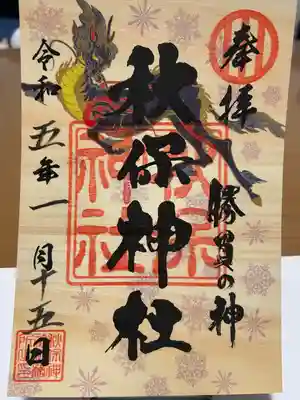 奉拝
勝負の神
秋保神社
令和五年一月十五日
秋保神社